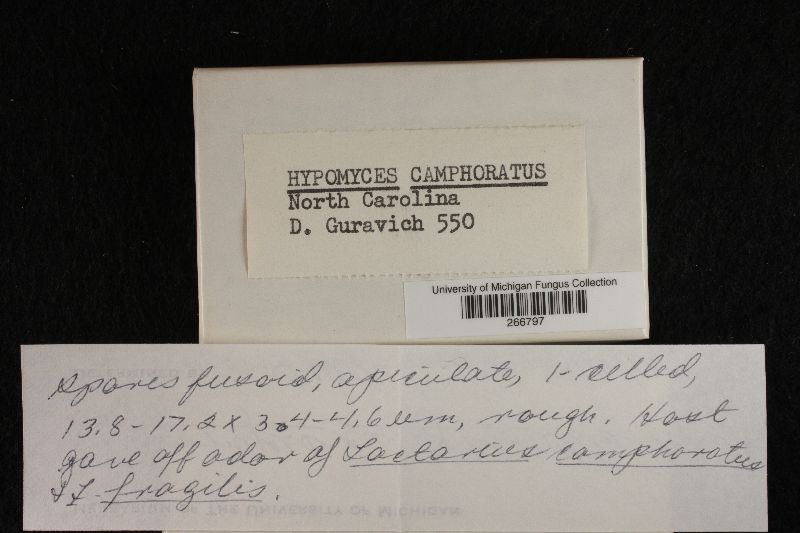 HYPOMYCES CAMPHORATUS
North Carolina
D. Guravich 550
University of Michigan Fungus Collection
266797
spores fusoid, apiculate, 1-celled,
13.8-17.2 x 3.4-4.6 um, rough. Host
gave off odor of Lactarius camphoratus
& L. fragilis.
HERBARIUM OF THE UNIVERSITY OF MICHIGAN